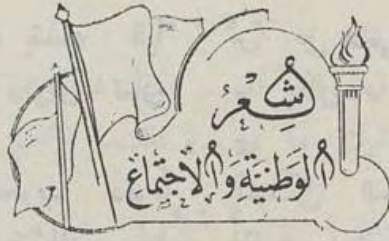 شِعْرُ
الوَطنِيَّةِ وَالاجتماع